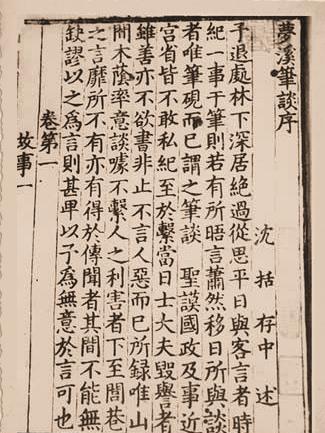 夢溪筆談序
沈括存中述
予退處林下深居絶過從思平日與客言者時
紀一事于筆則若有所晤言蕭然移日所與談
者唯筆硯而已謂之筆談 聖謨國政及事近
宫省皆不敢私紀至於繫當日士大夫毀譽者
雖善亦不欲書非止不言人惡而已所録唯山
間木蔭率意談噱不繫人之利害者下至閭巷
之言靡所不有亦有得於傳聞者其間不能無
缺謬以之為言則甚卑以予為無意於言可也
卷第一
故事一